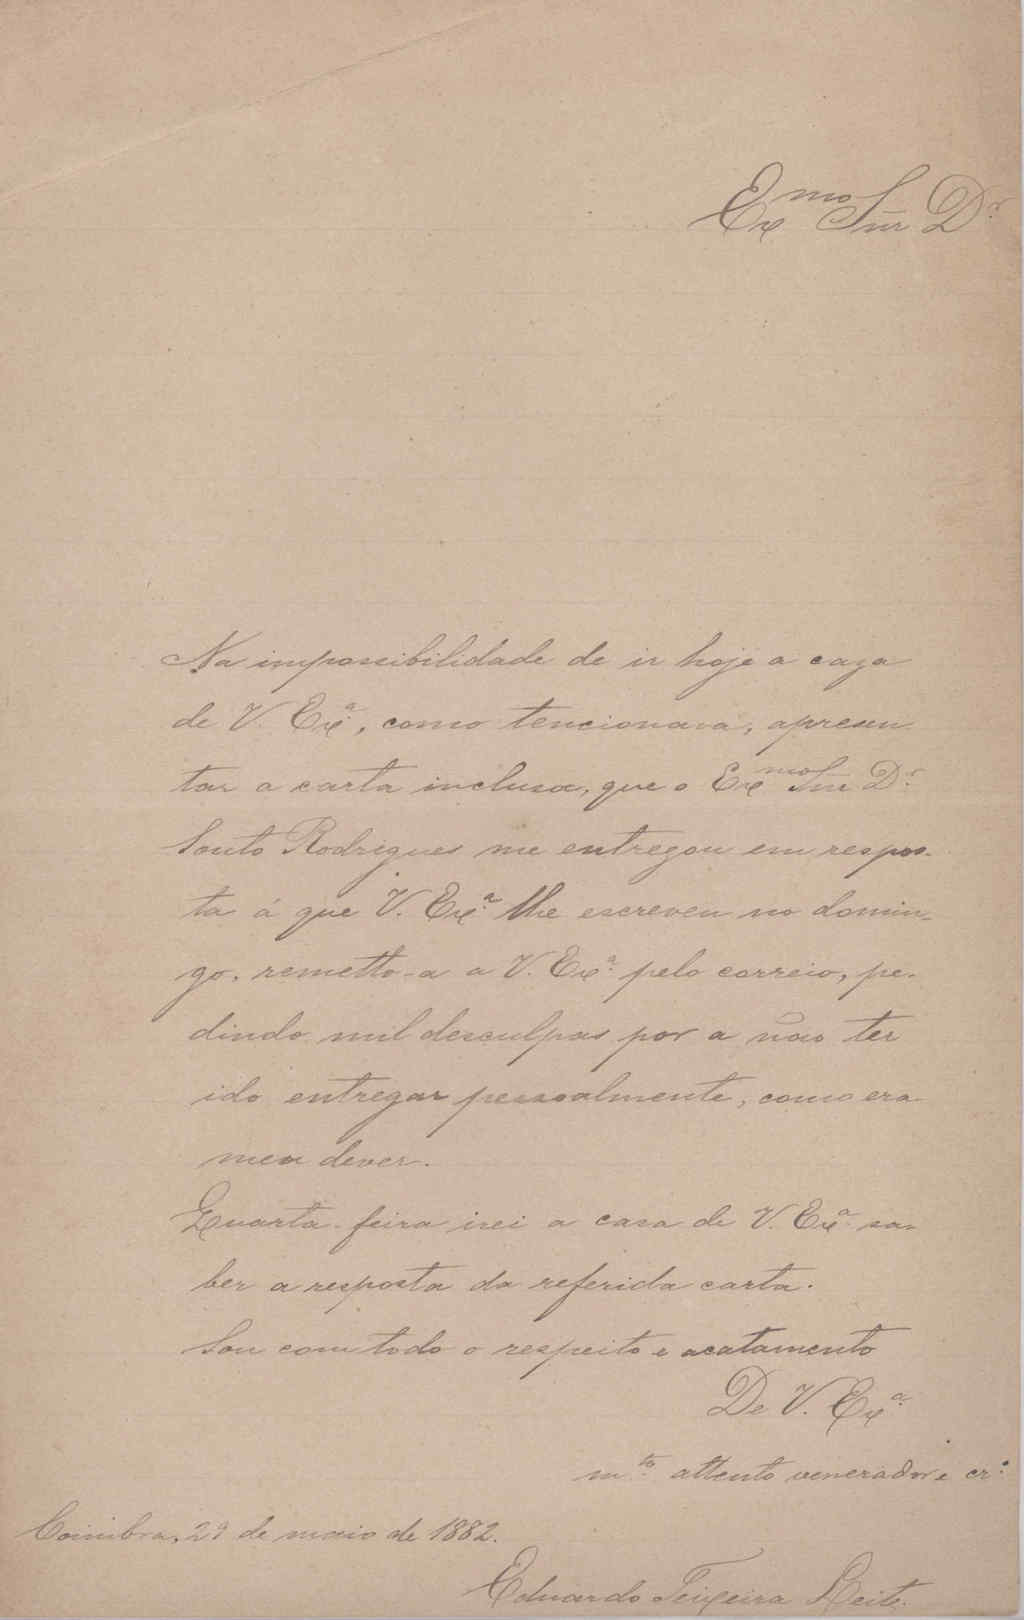 Ex.mo Snr Dr.
Na impossibilidade de ir hoje a caza
de V. Ex.a, como tencionava, apresen-
tar a carta inclusa, que o Ex.mo Snr Dr.
Souto Rodrigues me entregou em respos-
ta á que V. Ex.a lhe escreveu no domin-
go, remetto-a a V. Ex.a pelo correio, pe-
dindo mil desculpas por a não ter
ido entregar pessoalmente, como era
meu dever.
Quarta-feira irei a casa de V. Ex.a sa-
ber a resposta da referida carta.
Sou com todo o respeito e acatamento
De V. Ex.a
m.to attento venerador e cr.o
Coimbra, 29 de maio de 1882.
Eduardo Teixeira Leite.